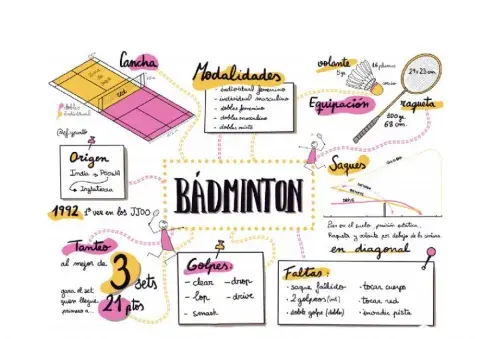 Cancha
Modalidades
- individual femenino
- individual masculino
- dobles femenino
- dobles masculino
- dobles mixto
volante
5 gr.
16 plumas
Equipación
raqueta
29x23 cm
100 gr.
68 cm.
dobles
individual
Origen
India → POONA
→ Inglaterra
1992 1ª vez en los JJOO
BÁDMINTON
Saques
Pies en el suelo, posición estática.
Raqueta y volante por debajo de la cintura
en diagonal
Tanteo
al mejor de 3 sets
gana el set
quien llegue
primero a... 21 ptos
Golpes:
- clear - drop
- lop - drive
- smash
Faltas:
- saque fallido
- 2 golpeos (ind)
- doble golpe (doble)
- tocar cuerpo
- tocar red
- invadir pista